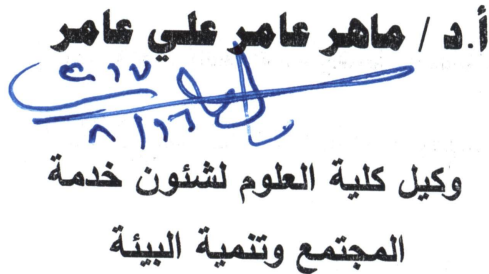 أ.د / ماهر عامر علي عامر
٨/١٦
وكيل كلية العلوم لشئون خدمة
المجتمع وتنمية البيئة